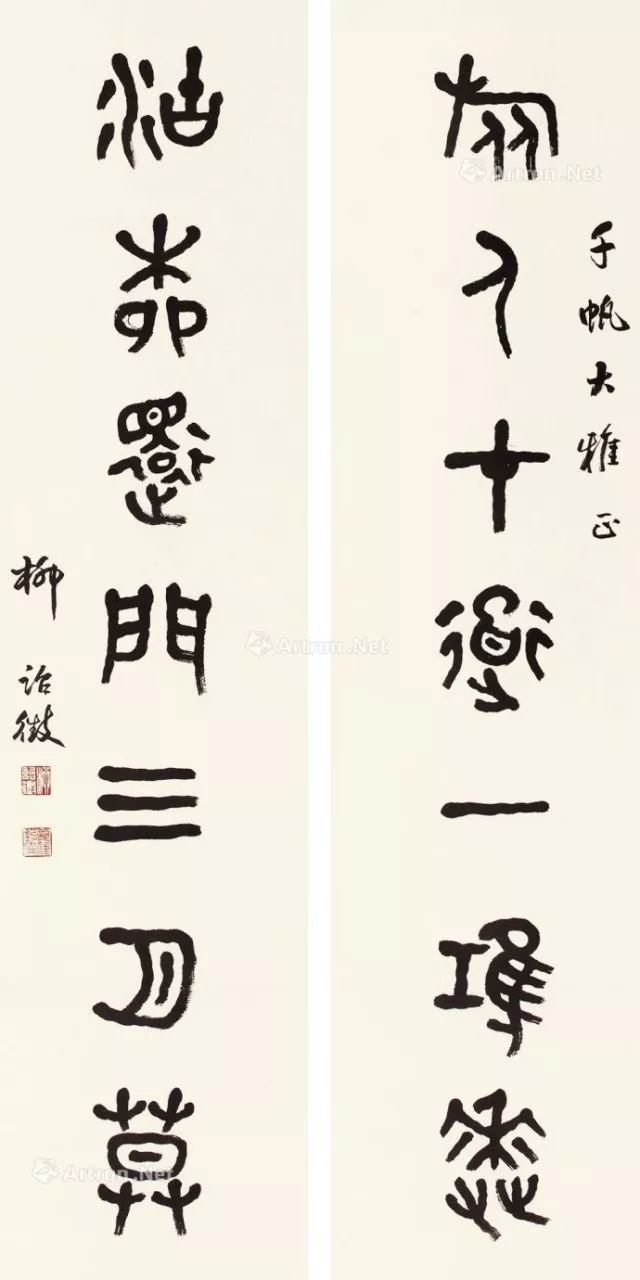 千帆大雅正
旅人十道一鴻
沽柳還門三月莫
柳詒徵
Artron.Net
Artron.Net
Artron.Net